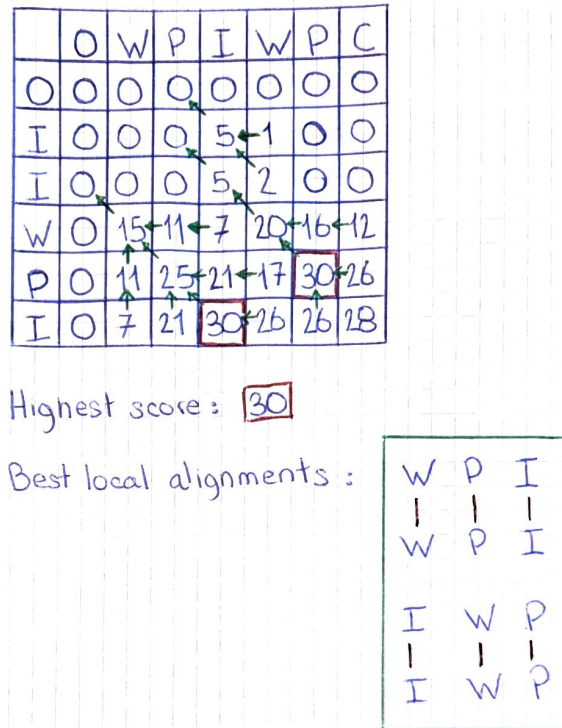 O W P I W P C
O O O O O O O O
I O O O 5 1 O O
I O O O 5 2 O O
W O 15 11 7 20 16 12
P O 11 25 21 17 30 26
I O 7 21 30 26 26 28
Highest score: 30
Best local alignments:
W P I
W P I
I W P
I W P